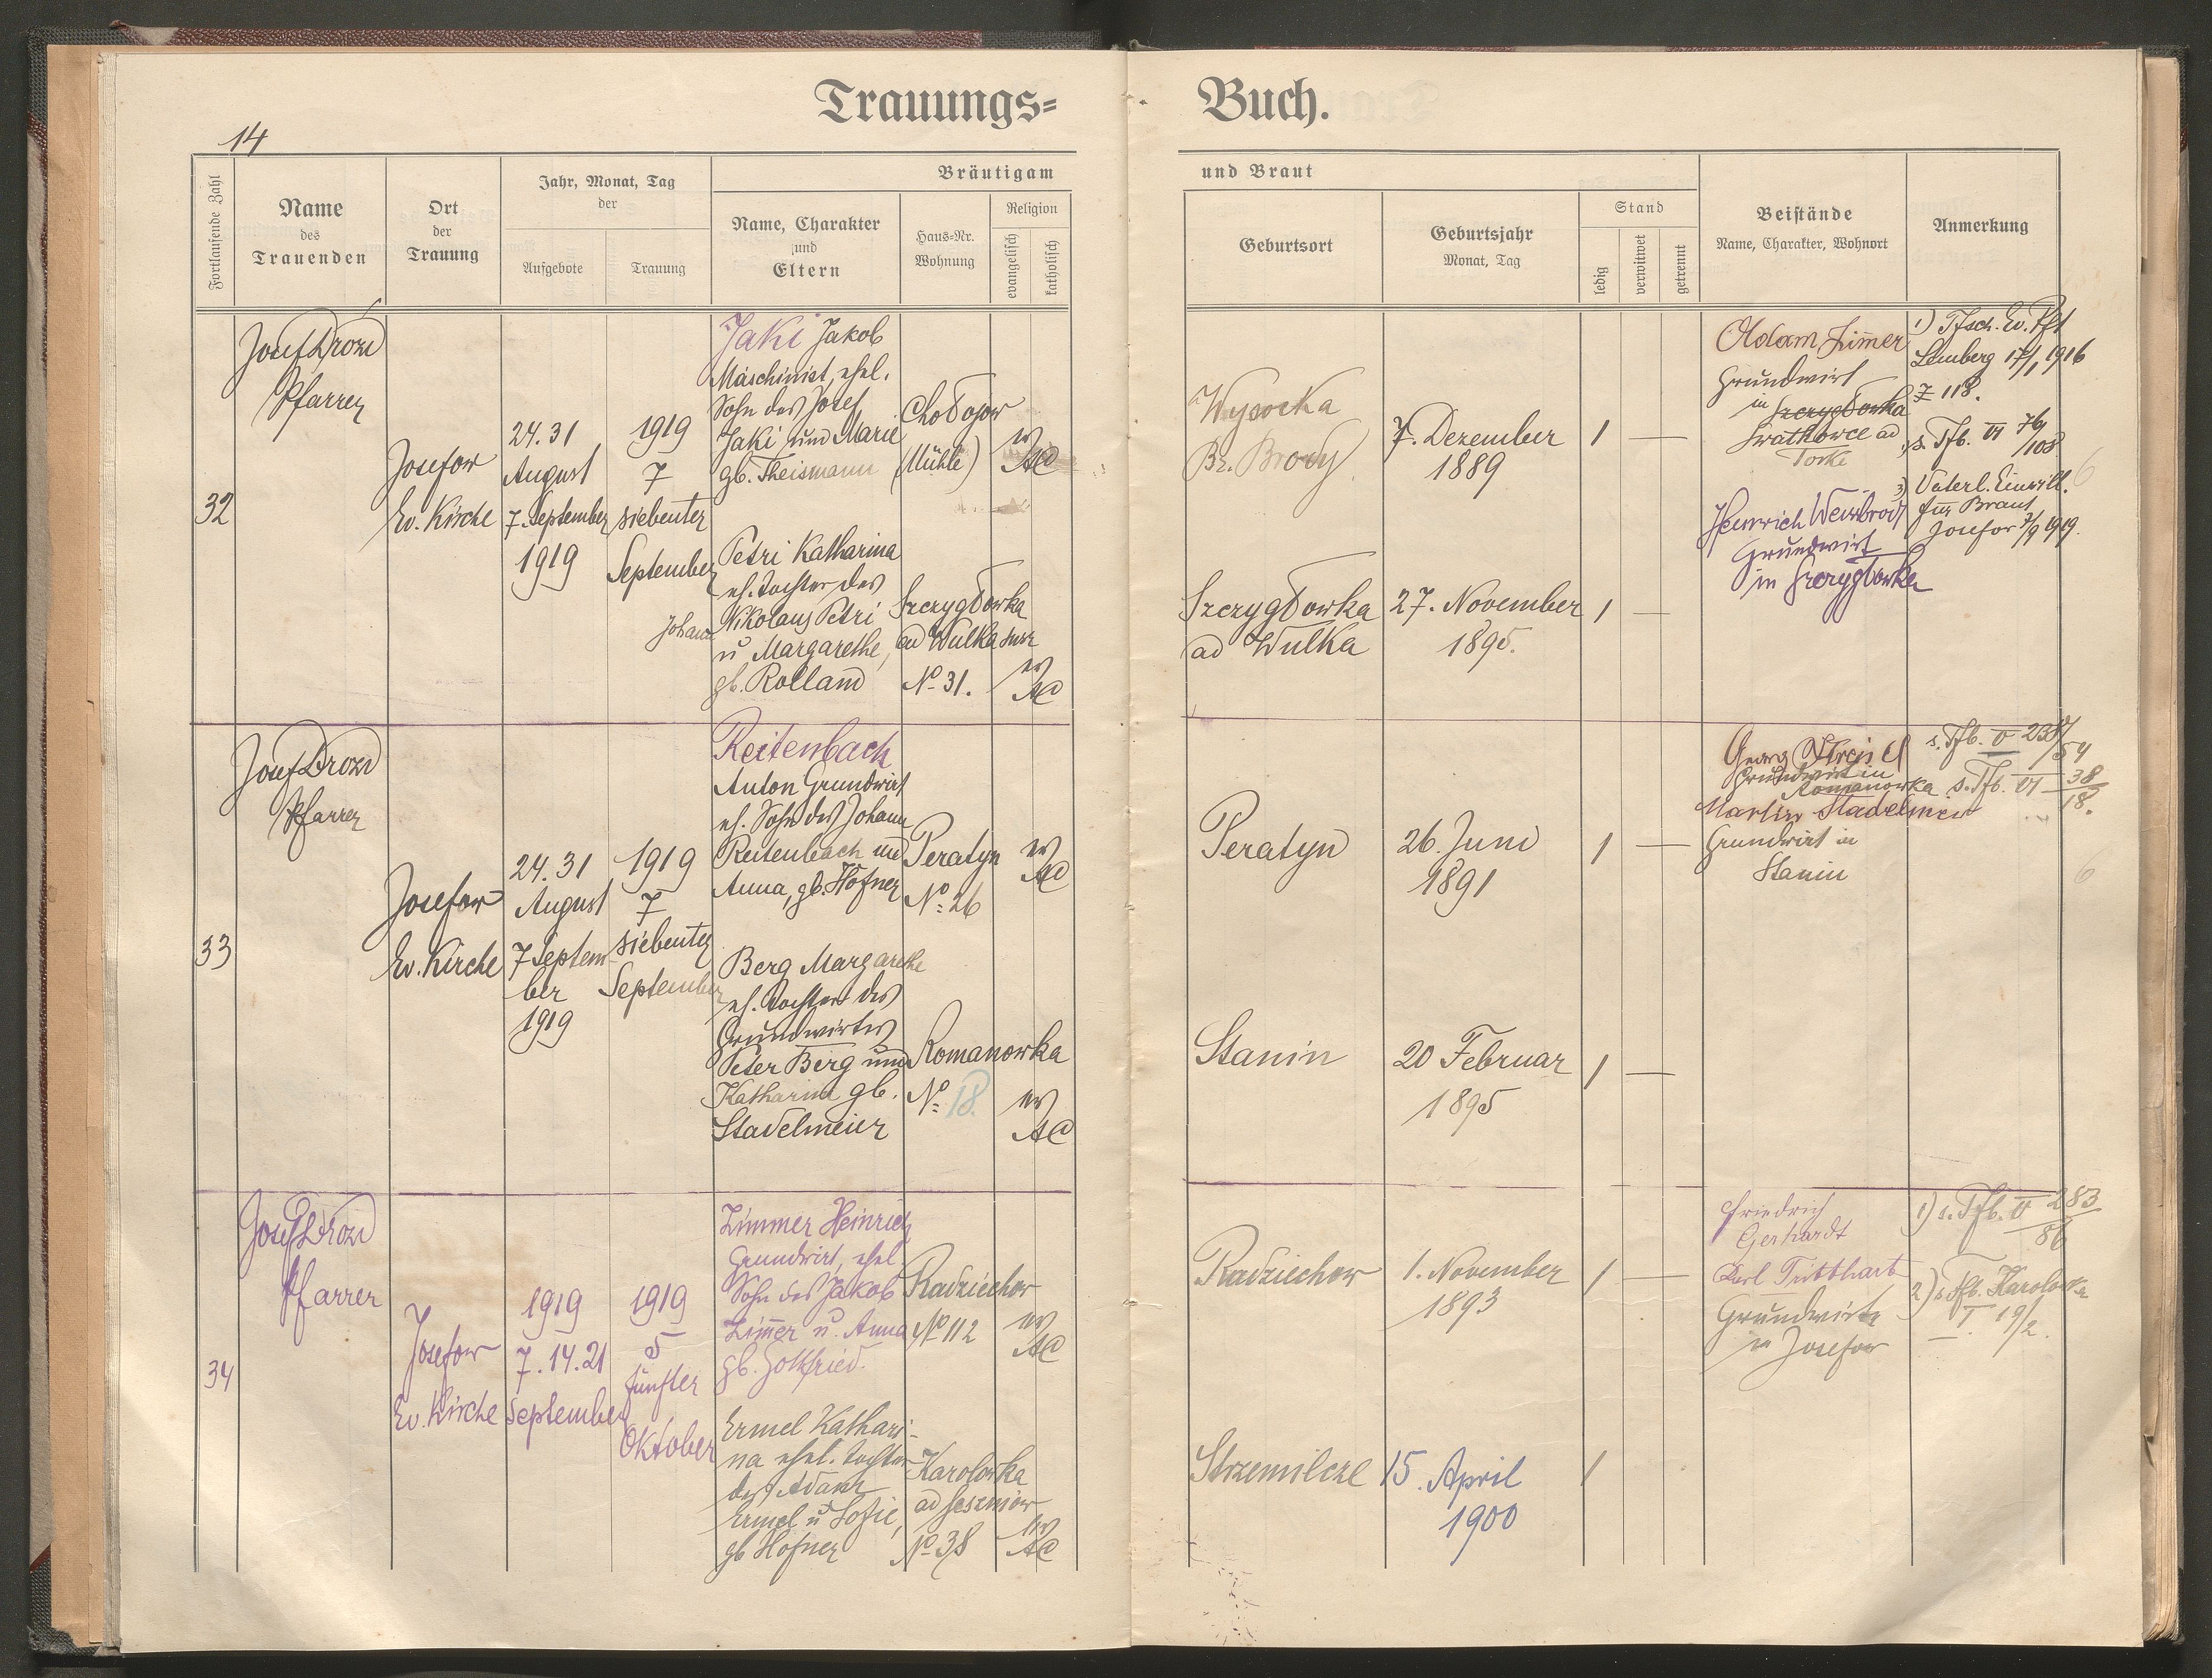 Trauungs=
Buch.
14
Fortlaufende Zahl
Name
des
Trauenden
Ort
der
Trauung
Jahr, Monat, Tag
der
Aufgebote
Trauung
Bräutigam
Name, Charakter
und
Eltern
Haus=Nr.
Wohnung
Religion
evangelisch
katholisch
und Braut
Geburtsort
Geburtsjahr
Monat, Tag
Stand
ledig
verwitwet
getrennt
Beistände
Name, Charakter, Wohnort
Anmerkung
32
Josef Drozd
Pfarrer
Josefow
Ev. Kirche
24. 31
August
7. September
1919
1919
7
siebenter
September
Jaki Jakob
Maschinist, ehel.
Sohn des Josef
Jaki und Marie
gb. Theismann
Chołojow
(Mühle)
ev
AC
Petri Katharina
eh. Tochter des
Johann Nikolaus Petri
u Margarethe,
gb. Rolland
Szczygłowka
ad Wulka
No 31.
ev
AC
Wysocka
Bz. Brody
7. Dezember
1889
1
Szczygłowka
ad Wulka
27. November
1895.
1
Adam Zimmer
Grundwirt
in Szczygłowka
ad
Torki
Heinrich Weissbrod
Grundwirt
in Szczygłowka
1) Tfsch. Ev. Pft
Lemberg 17/1 1916
Z 118.
s. Tfb. VI 76/108
3) Väterl. Einwill.
für Braut
Josefow 7/9 1919.
6
33
Josef Drozd
Pfarrer
Josefow
Ev. Kirche
24. 31
August
7 Septem
ber
1919
1919
7
siebenter
September
Reitenbach
Anton Grundwirt
eh. Sohn des Johann
Reitenbach und
Anna, gb. Höfner
Peratyn
No 26
ev
AC
Berg Margarethe
eh. Tochter des
Grundwirtes
Peter Berg und
Katharina gb.
Stadelmeier
Romanowka
No 18.
ev
AC
Peratyn
26. Juni
1891
1
Stanin
20 Februar
1895
1
Georg
Grundwirt in
Romanowka
Martin Stadelmeier
Grundwirt in
Stanin
s. Tfb. V 238/54
s. Tfb. VI 38/18.
6
34
Josef Drozd
Pfarrer
Josefow
Ev. Kirche
1919
7. 14. 21
September
1919
5
fünfter
Oktober
Zimmer Heinrich
Grundwirt, ehel.
Sohn des Jakob
Zimmer u. Anna
gb. Gottfried.
Radziechow
No 112
ev
AC
Ermel Kathari-
na ehel. Tochter
des Adam
Ermel u Sofie,
gb Höfner
Karolowka
ad
No 38
ev
AC
Radziechow
1. November
1893
1
Strzemilcze
15. April
1900
1
Friedrich
Gerhardt
Karl Tritthart
Grundwirte
in Josefow
1) s. Tfb. V 283/86
2) s. Tfb. Karolowka